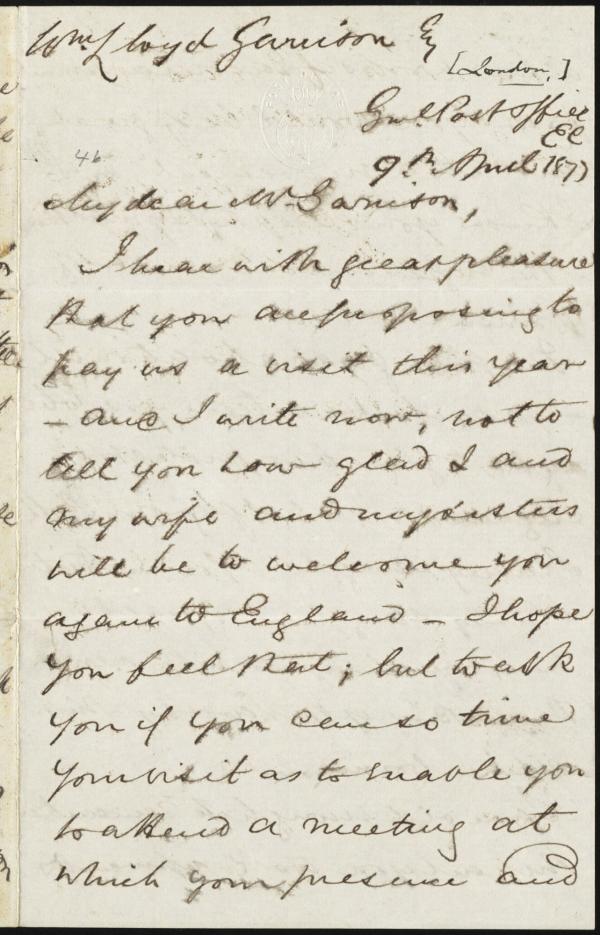 Wm Lloyd Garrison Eq
[London,]
Genl. Post Office
EC
9th April 1877
46
My dear Mr Garrison,
I hear with great pleasure
that you are proposing to
pay us a visit this year
– and I write now, not to
tell you how glad I and
my wife and my sisters
will be to welcome you
again to England – I hope
you feel that; but to ask
you if you can so time
your visit as to enable you
to attend a meeting at
which your presence and